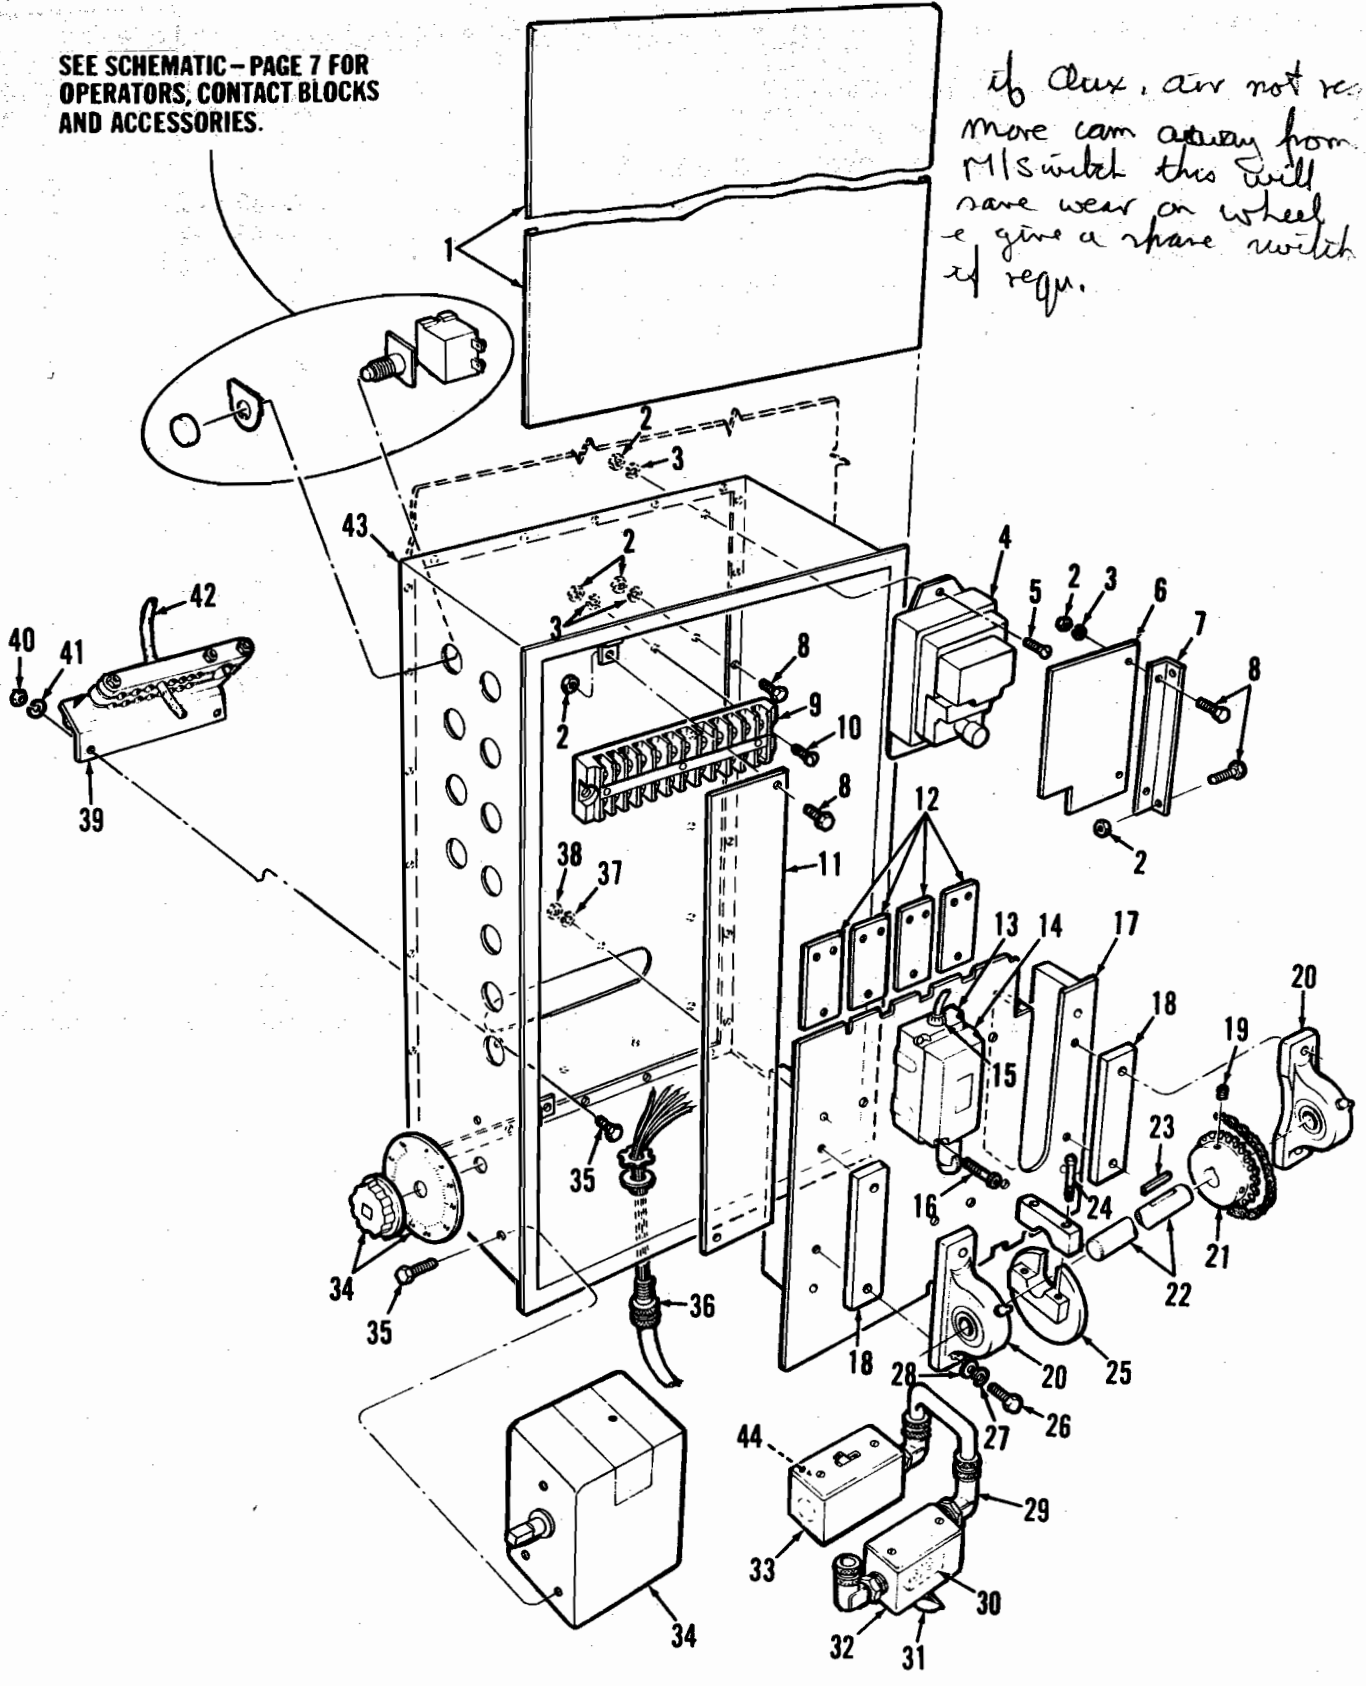 SEE SCHEMATIC – PAGE 7 FOR
OPERATORS, CONTACT BLOCKS
AND ACCESSORIES.
if Aux. air not
move cam away from
M/Switch this will
save wear on wheel
e give a spare switch
if requ.
1
2
3
43
2
4
3
42
5
2
3
6
7
40
41
8
8
9
2
10
39
8
12
2
11
38
37
13
14
17
20
18
19
15
23
35
16
24
21
22
34
36
35
18
28
20
25
27
26
44
29
33
30
34
32
31